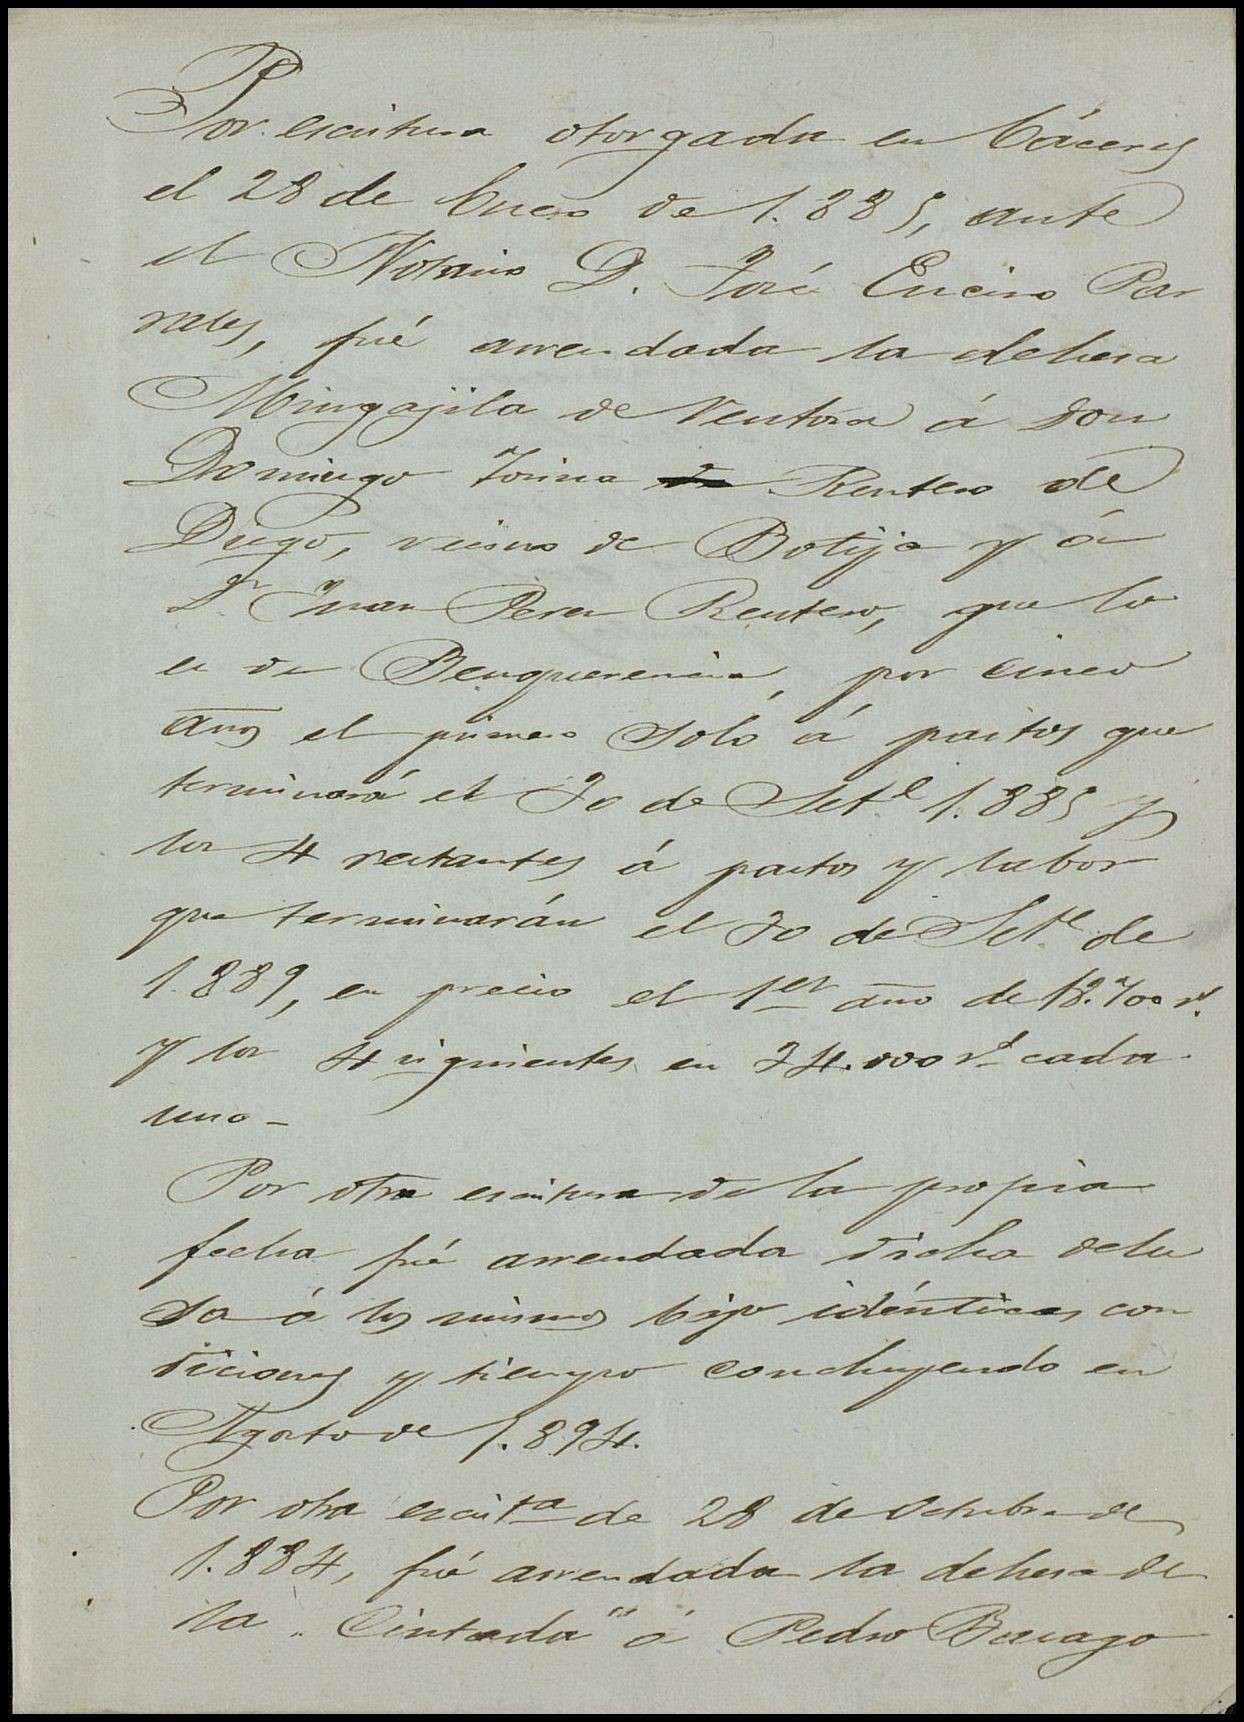 Por escritura otorgada en Cáceres
el 28 de Enero de 1.885, ante
el Notario D. José Enciso Par
rales, fué arrendada la dehesa
Mingajila de Ventosa á Don
Domingo Rentero de
Diego, vecino de Botija y á
Dn Juan Perez Rentero, que lo
es de Benquerencia, por cinco
años el primero solo á pastos que
terminará el 30 de Sete 1.885 y
los 4 restantes á pastos y labor
que terminarán el 30 de Sete de
1.889, en precio el 1er año de 18.700 rs
y los 4 siguientes en 24.000 rs cada
uno-
Por otra escritura de la propia
fecha fué arrendada dicha dehe
sa á los mismos bajo idénticas con
diciones y tiempo concluyendo en
Agosto de 1.894.
Por otra escrita de 28 de Octubre de
1.884, fué arrendada la dehesa de
la "Cintada" á Pedro